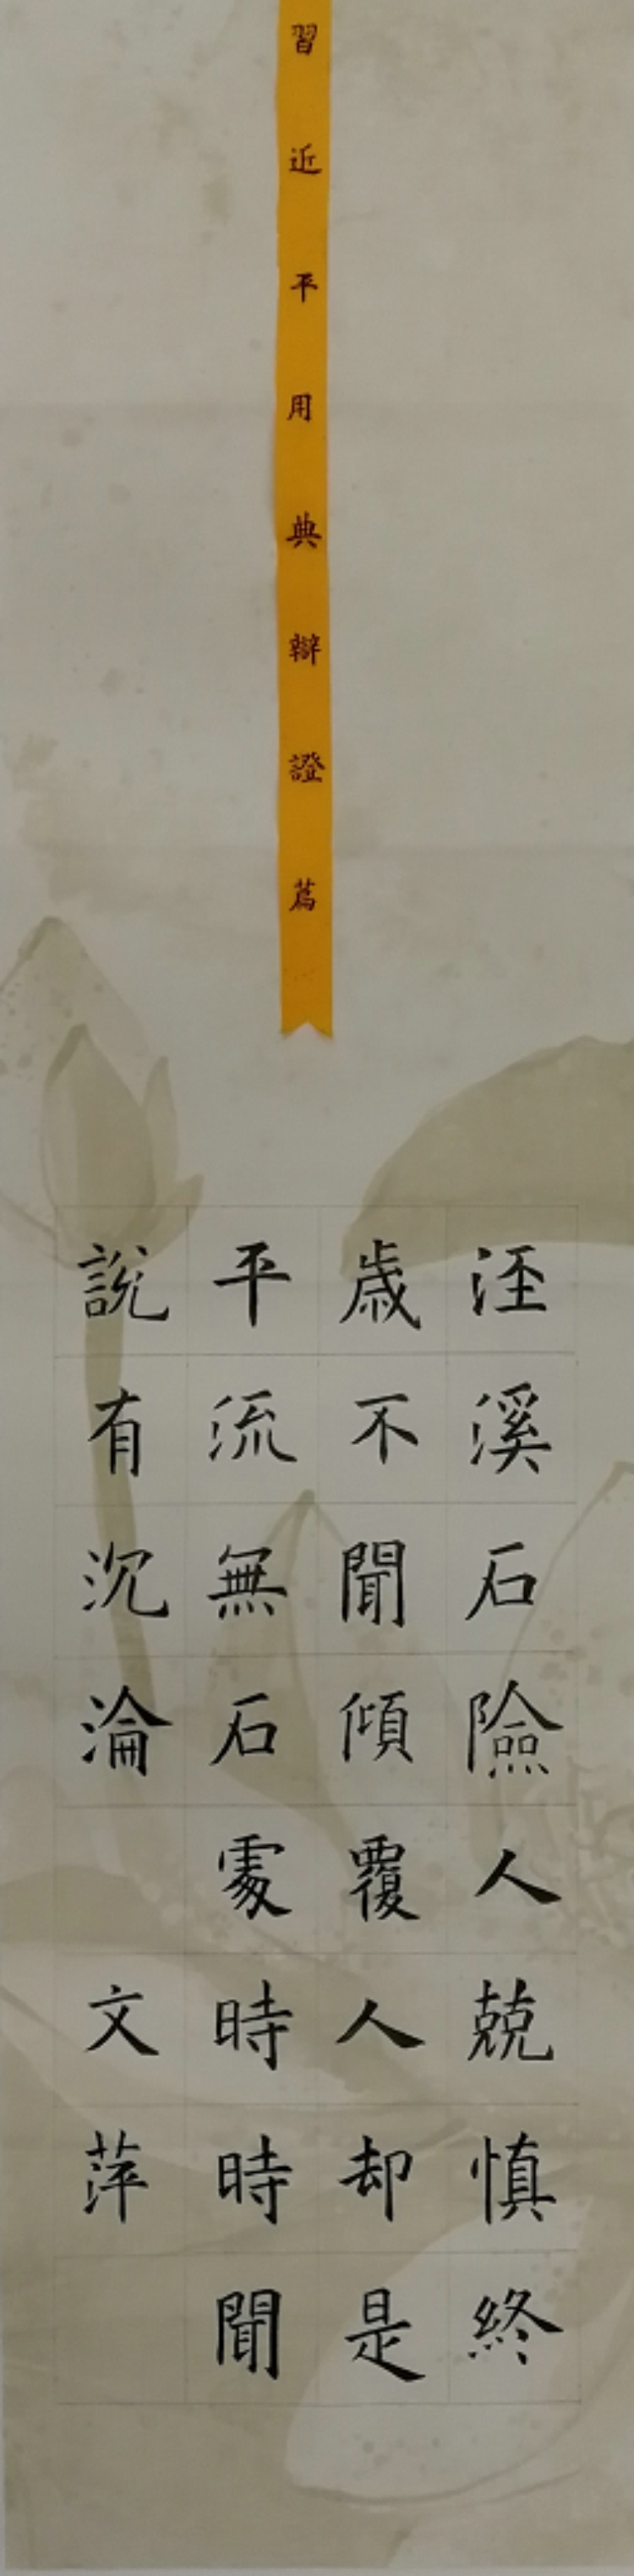 習近平用典辯證篇
涇溪石險人兢慎終
歲不聞傾覆人却是
平流無石處時時聞
說有沉淪 文萍